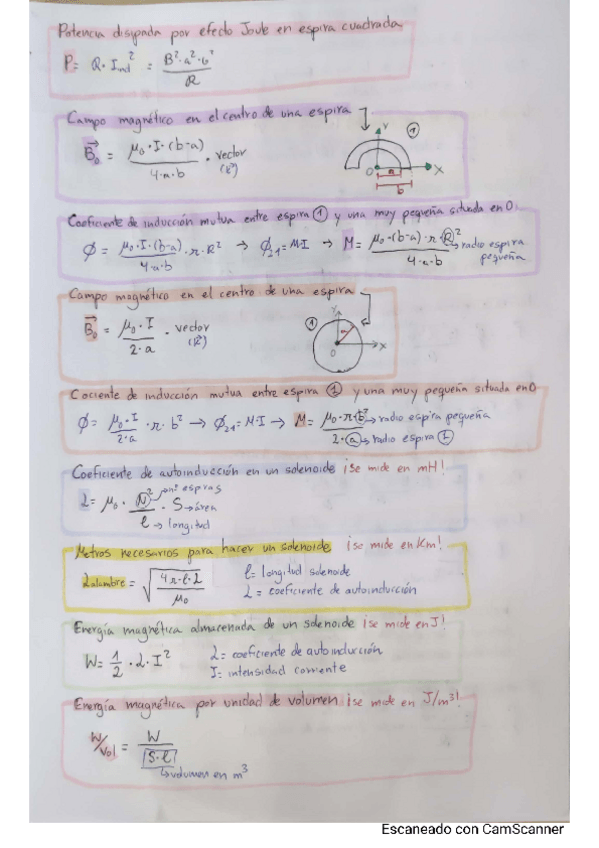 Potencia disipada por efecto Joule en espira cuadrada
P = R · I_ind² = B²·a²·v² / R
Campo magnético en el centro de una espira
B₀ = μ₀·I·(b-a) / 4·a·b · vector (k)
Y
1
O
a
X
b
Coeficiente de inducción mutua entre espira ① y una muy pequeña situada en O.
ϕ = μ₀·I·(b-a) / 4·a·b · π·R² → ϕ₂₁ = M·I → M = μ₀·(b-a)·π·R² / 4·a·b → radio espira pequeña
Campo magnético en el centro de una espira
B₀ = μ₀·I / 2·a · vector (k)
①
Y
a
O
X
Cociente de inducción mutua entre espira ① y una muy pequeña situada en O
ϕ = μ₀·I / 2·a · π·b² → ϕ₂₁ = M·I → M = μ₀·π·b² / 2·a
→ radio espira pequeña
→ radio espira ①
Coeficiente de autoinducción en un solenoide ¡se mide en mH!
L = μ₀ · N² / l · S
→ nº espiras
→ área
→ longitud
Metros necesarios para hacer un solenoide ¡se mide en Km!
Lalambre = √(4π·l·L / μ₀)
l = longitud solenoide
L = coeficiente de autoinducción
Energía magnética almacenada de un solenoide ¡se mide en J!
W = 1/2 · L · I²
L = coeficiente de autoinducción
I = intensidad corriente
Energía magnética por unidad de volumen ¡se mide en J/m³!
W/Vol = W / S·l
→ volumen en m³
Escaneado con CamScanner